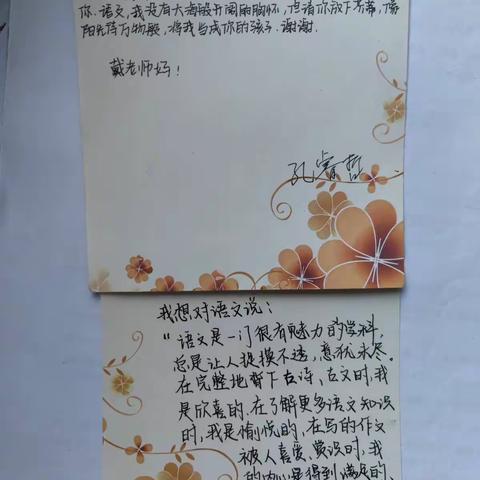 你.语文,我没有大海般开阔的胸怀.但请你放下芥蒂,像
阳光待万物般,将我当成你的孩子.谢谢.
戴老师妈!
孔睿哲
我想对语文说:
“语文是一门很有魅力的学科,
总是让人捉摸不透,意犹未尽.
在完整地背下古诗、古文时,我
是欣喜的.在了解更多语文知识
时,我是愉悦的,在写的作文
被人喜爱、赏识时,我
的内心是得到满足的,